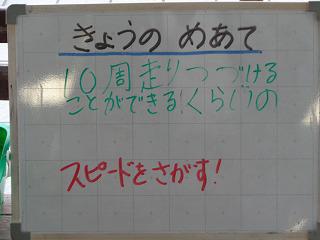 きょうの めあて
10周走りつづける
ことができるくらいの
スピードをさがす!